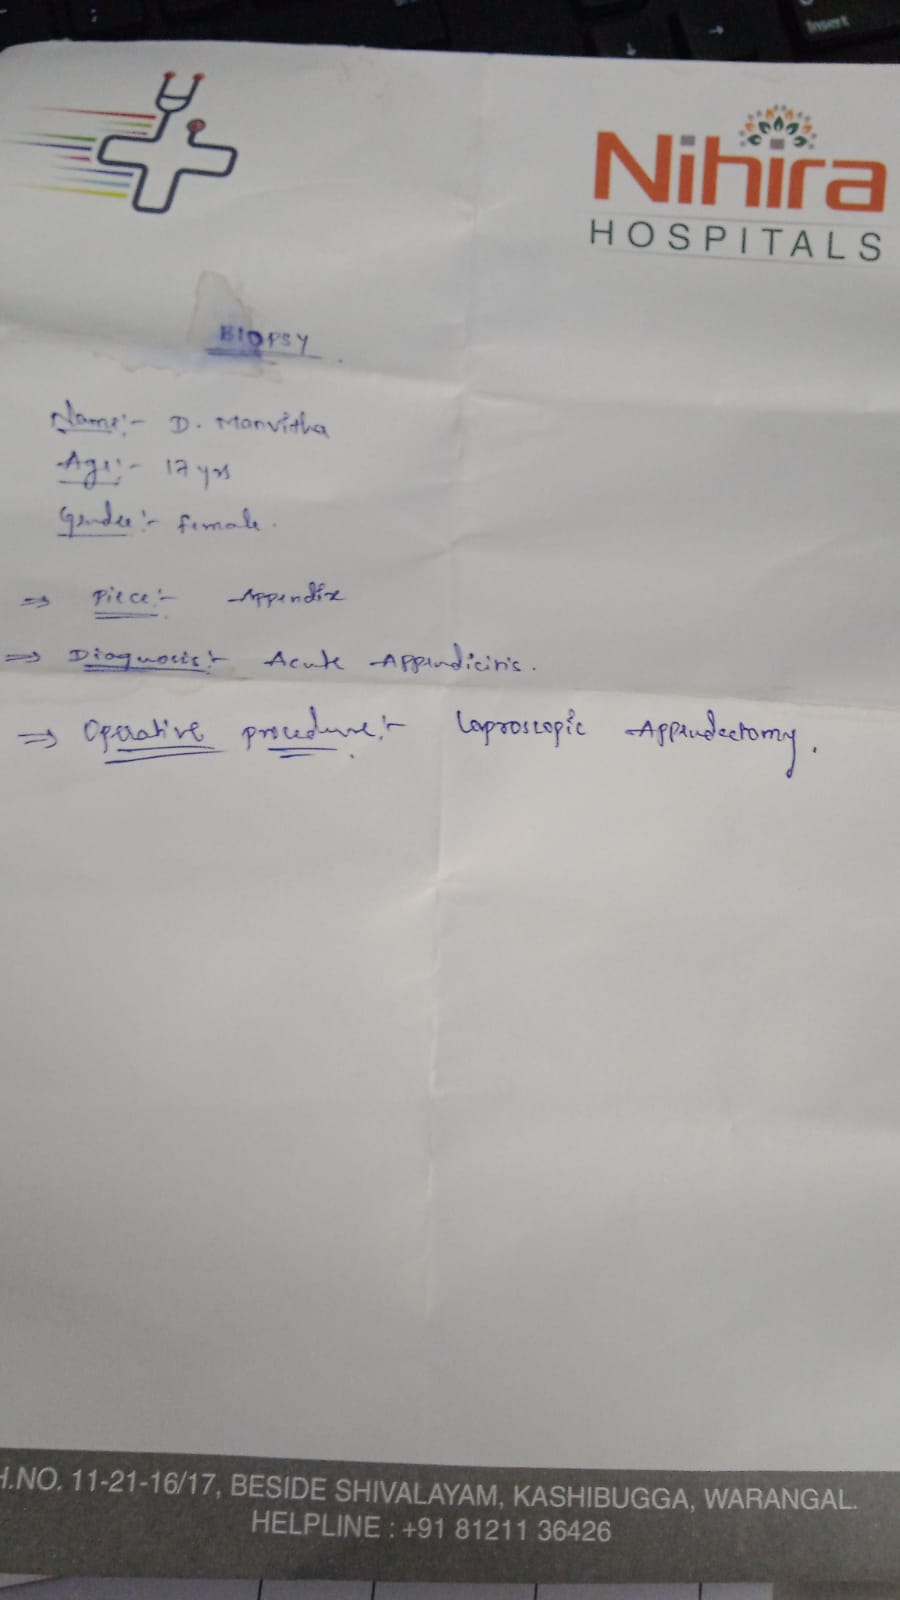 Insert
Nihira
HOSPITALS
BIOPSY
Name:- D. Manvitha
Age:- 17 yrs
Gender:- female.
⇒ Piece:- Appendix
⇒ Diagnosis:- Acute Appendicitis.
⇒ Operative procedure:- laproscopic Appendectomy.
H.NO. 11-21-16/17, BESIDE SHIVALAYAM, KASHIBUGGA, WARANGAL.
HELPLINE : +91 81211 36426